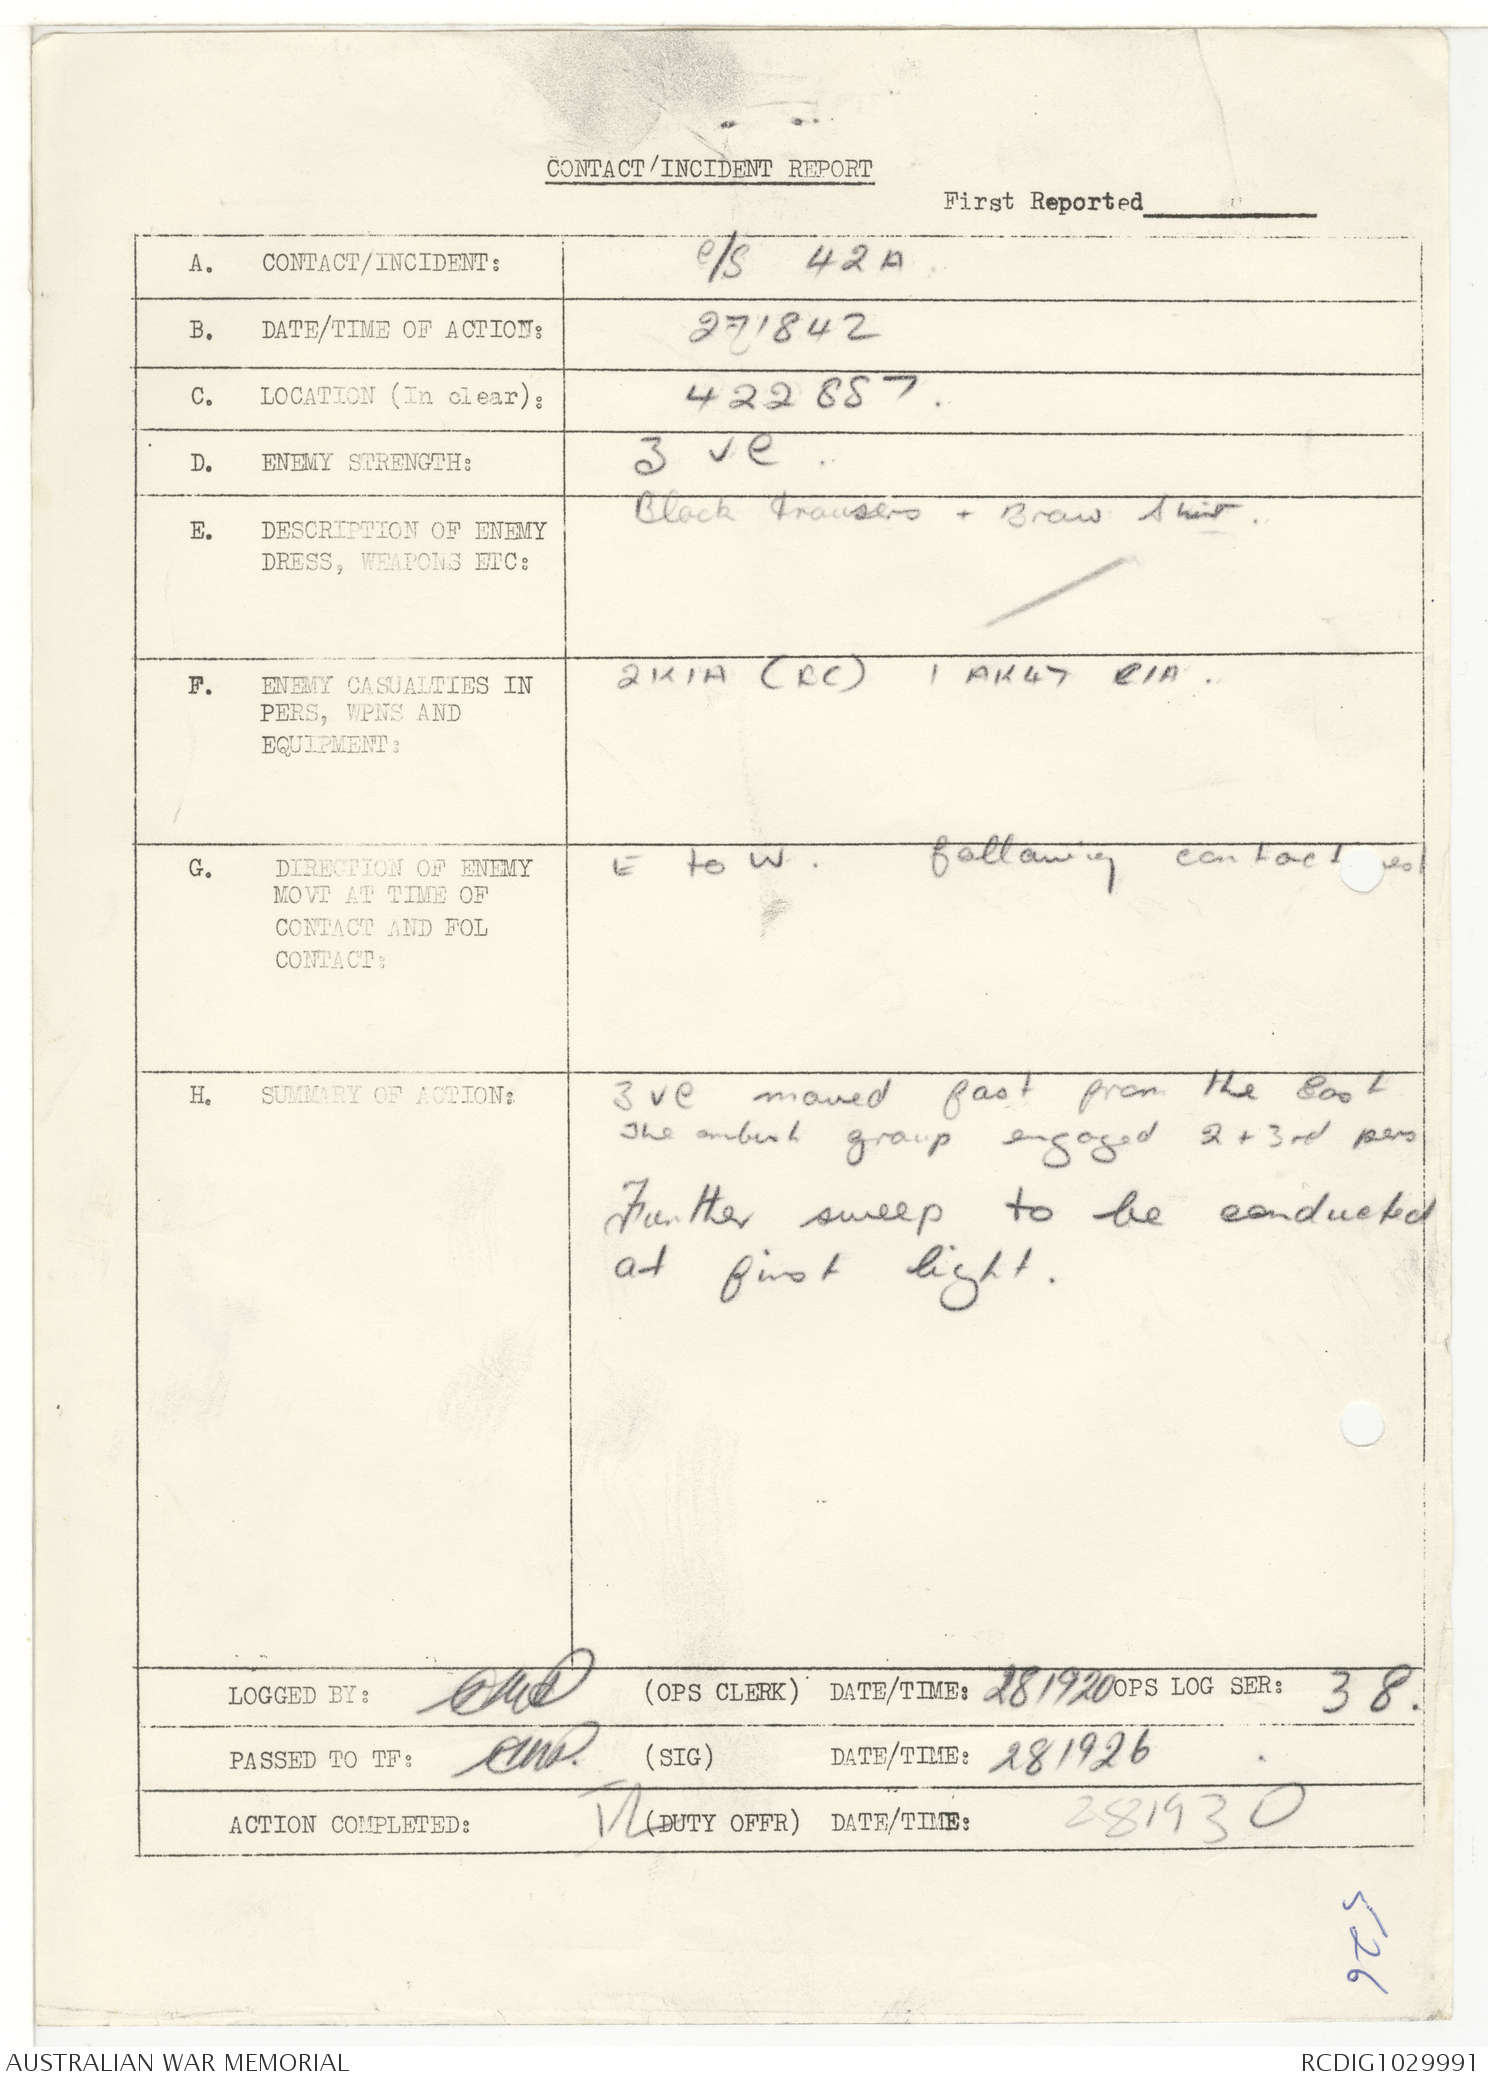 CONTACT/INCIDENT REPORT
First Reported
A. CONTACT/INCIDENT: C/S 42A.
B. DATE/TIME OF ACTION: 271842
C. LOCATION (In clear): 422887.
D. ENEMY STRENGTH: 3 VC.
E. DESCRIPTION OF ENEMY Black trousers + Brow Shirt.
DRESS, WEAPONS ETC:
F. ENEMY CASUALTIES IN 2KIA (RC) 1 AK47 CIA.
PERS, WPNS AND
EQUIPMENT:
G. DIRECTION OF ENEMY E to W. following contact
MOVT AT TIME OF
CONTACT AND FOL
CONTACT:
H. SUMMARY OF ACTION: 3 VC moved fast from the East
The ambush group engaged 2 + 3rd pers
Further sweep to be conducted
at first light.
LOGGED BY: (OPS CLERK) DATE/TIME: 281920 OPS LOG SER: 38.
PASSED TO TF: (SIG) DATE/TIME: 281926
ACTION COMPLETED: (DUTY OFFR) DATE/TIME: 281930
526
AUSTRALIAN WAR MEMORIAL
RCDIG1029991